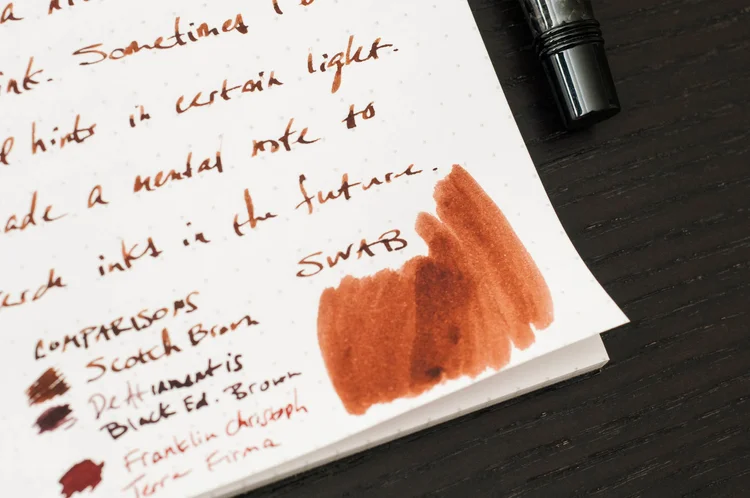 a
ink. Sometimes I
hints in certain light.
made a mental note to
inks in the future.
SWAB
COMPARISONS
Scotch Brown
De Atramentis
Black Ed. Brown
Franklin Christoph
Terra Firma